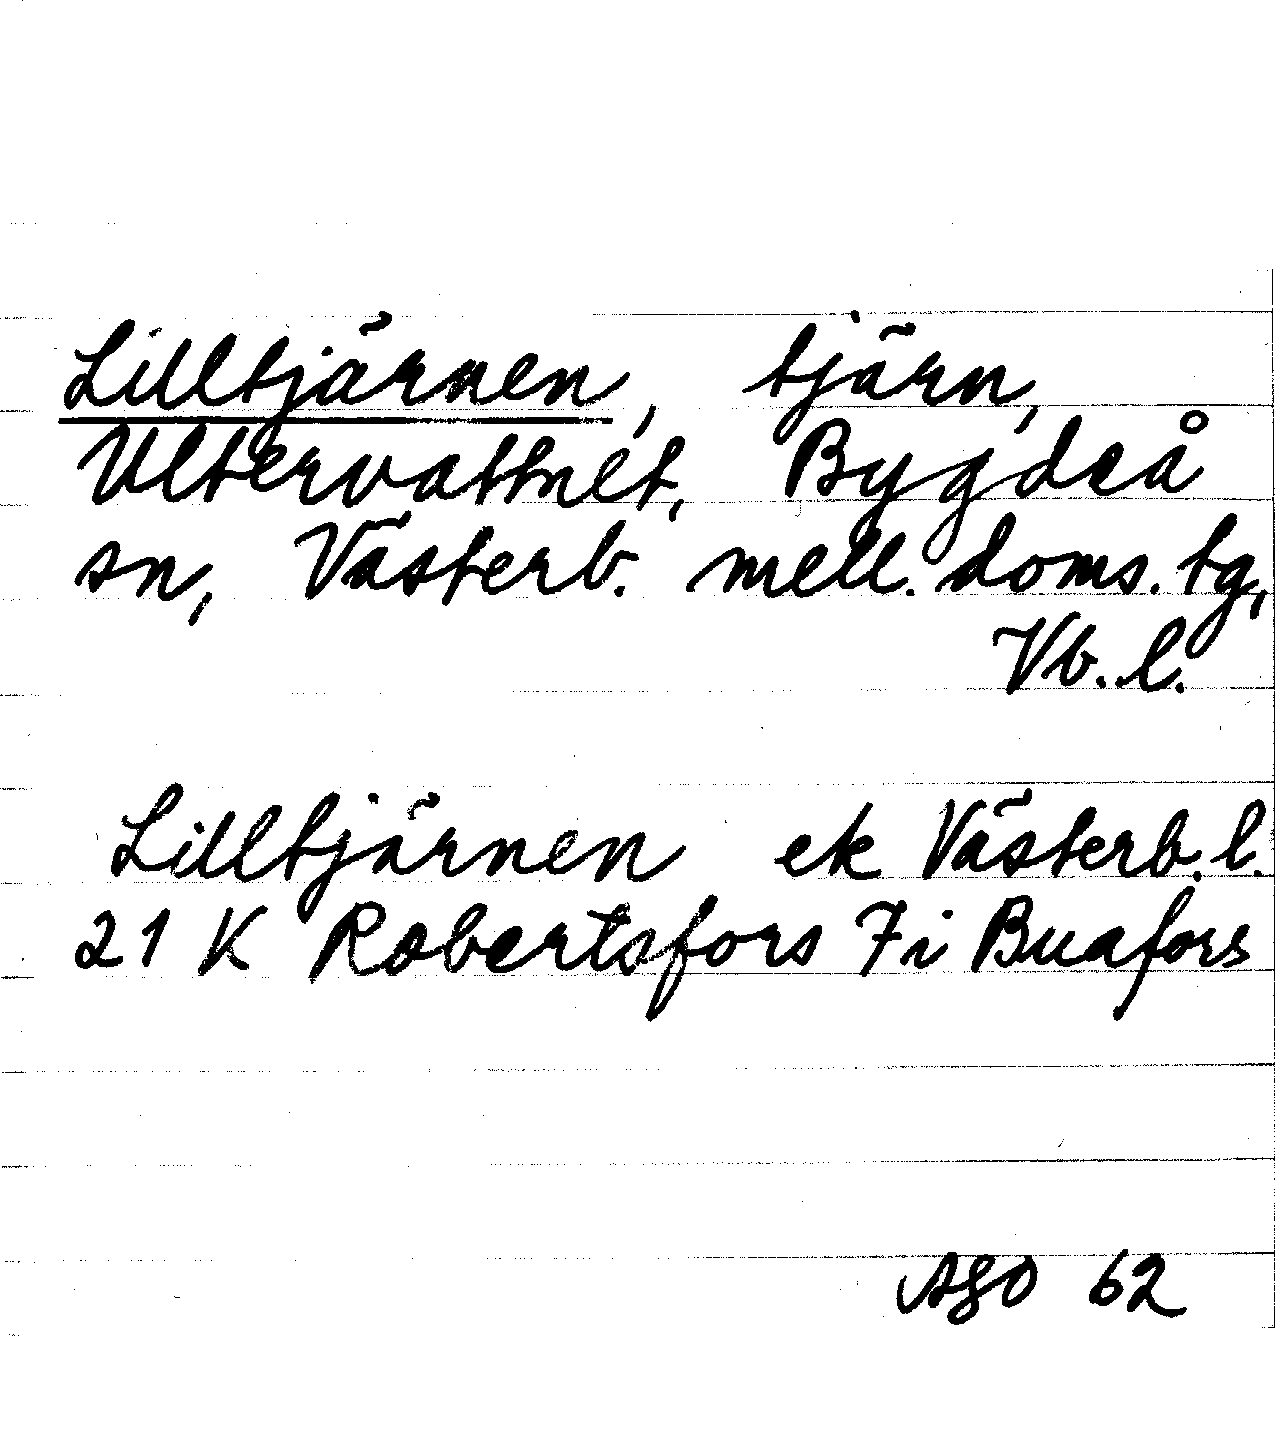 Lilltjärnen, tjärn,
Ultervattnet, Bygdeå
sn, Västerb. mell. doms. tg,
Vb. l.
Lilltjärnen ek Västerb. l.
21 K Robertsfors 7i Buafors
AGO 62